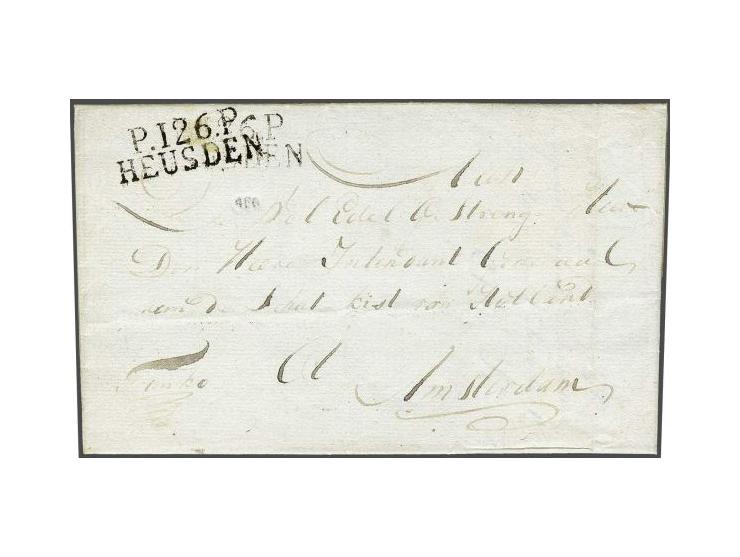 P.126.P.
HEUSDEN
6.P
DEN
Aan
Edel Gestrenge
Den Heere Intendant Generaal
van de Schat kist van Holland
A Amsterdam